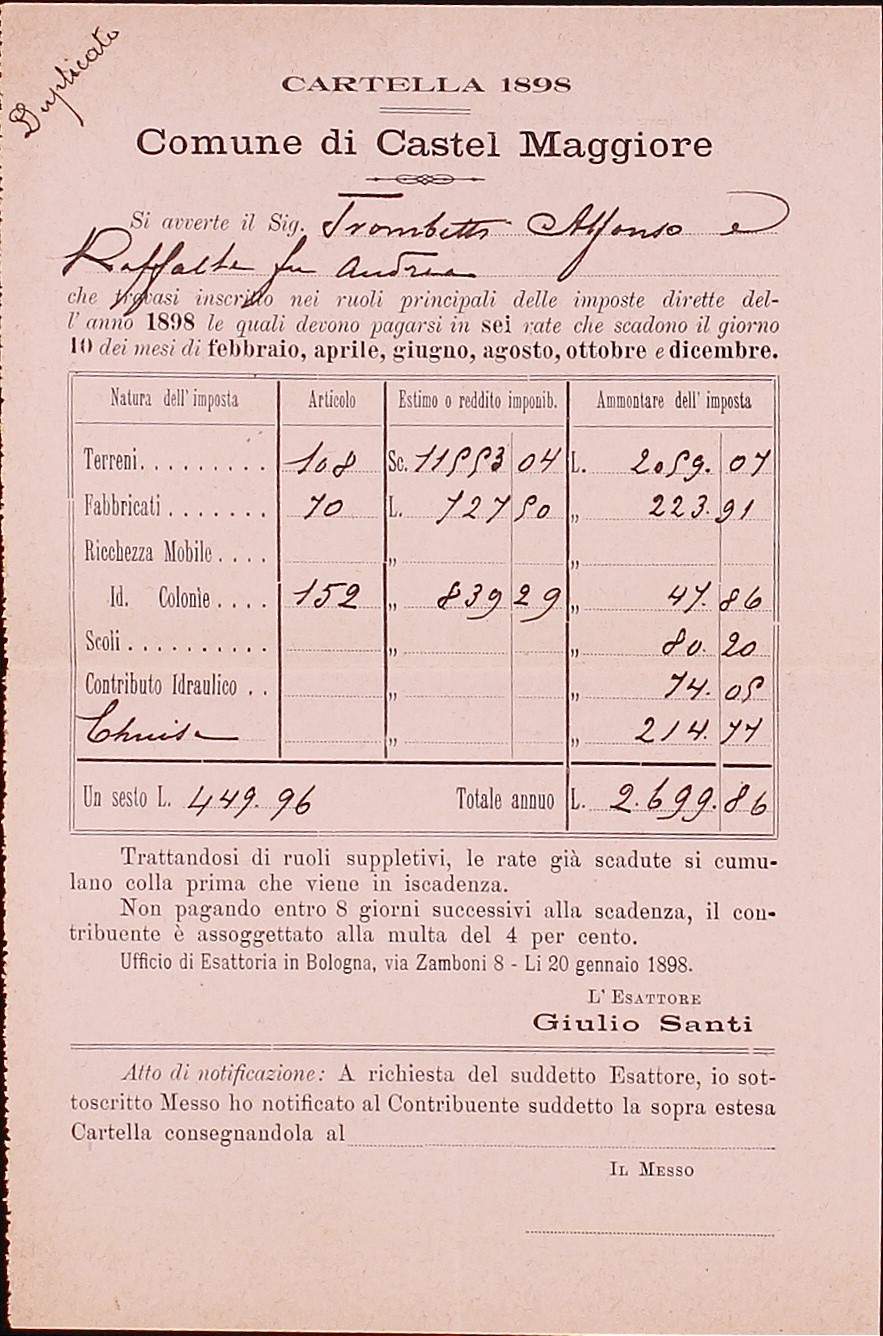 Duplicato
CARTELLA 1898
Comune di Castel Maggiore
Si avverte il Sig. Trombetti Alfonso e
Raffaele fu Andrea
che trovasi inscritto nei ruoli principali delle imposte dirette del-
l' anno 1898 le quali devono pagarsi in sei rate che scadono il giorno
10 dei mesi di febbraio, aprile, giugno, agosto, ottobre e dicembre.
Natura dell' imposta Articolo Estimo o reddito imponib. Ammontare dell' imposta
Terreni. . . . . . . . . 108 Sc. 11553 04 L. 2059. 07
Fabbricati . . . . . . . 70 L. 727 50 „ 223. 91
Ricchezza Mobile . . . . „ „
Id. Colonie . . . . 152 „ 839 29 „ 47. 86
Scoli . . . . . . . . . . „ „ 80. 20
Contributo Idraulico . . „ „ 74. 05
Chiusa „ „ 214. 77
Un sesto L. 449. 96 Totale annuo L. 2.699. 86
Trattandosi di ruoli suppletivi, le rate già scadute si cumu-
lano colla prima che viene in iscadenza.
Non pagando entro 8 giorni successivi alla scadenza, il con-
tribuente è assoggettato alla multa del 4 per cento.
Ufficio di Esattoria in Bologna, via Zamboni 8 - Li 20 gennaio 1898.
L' ESATTORE
Giulio Santi
Atto di notificazione: A richiesta del suddetto Esattore, io sot-
toscritto Messo ho notificato al Contribuente suddetto la sopra estesa
Cartella consegnandola al
IL MESSO